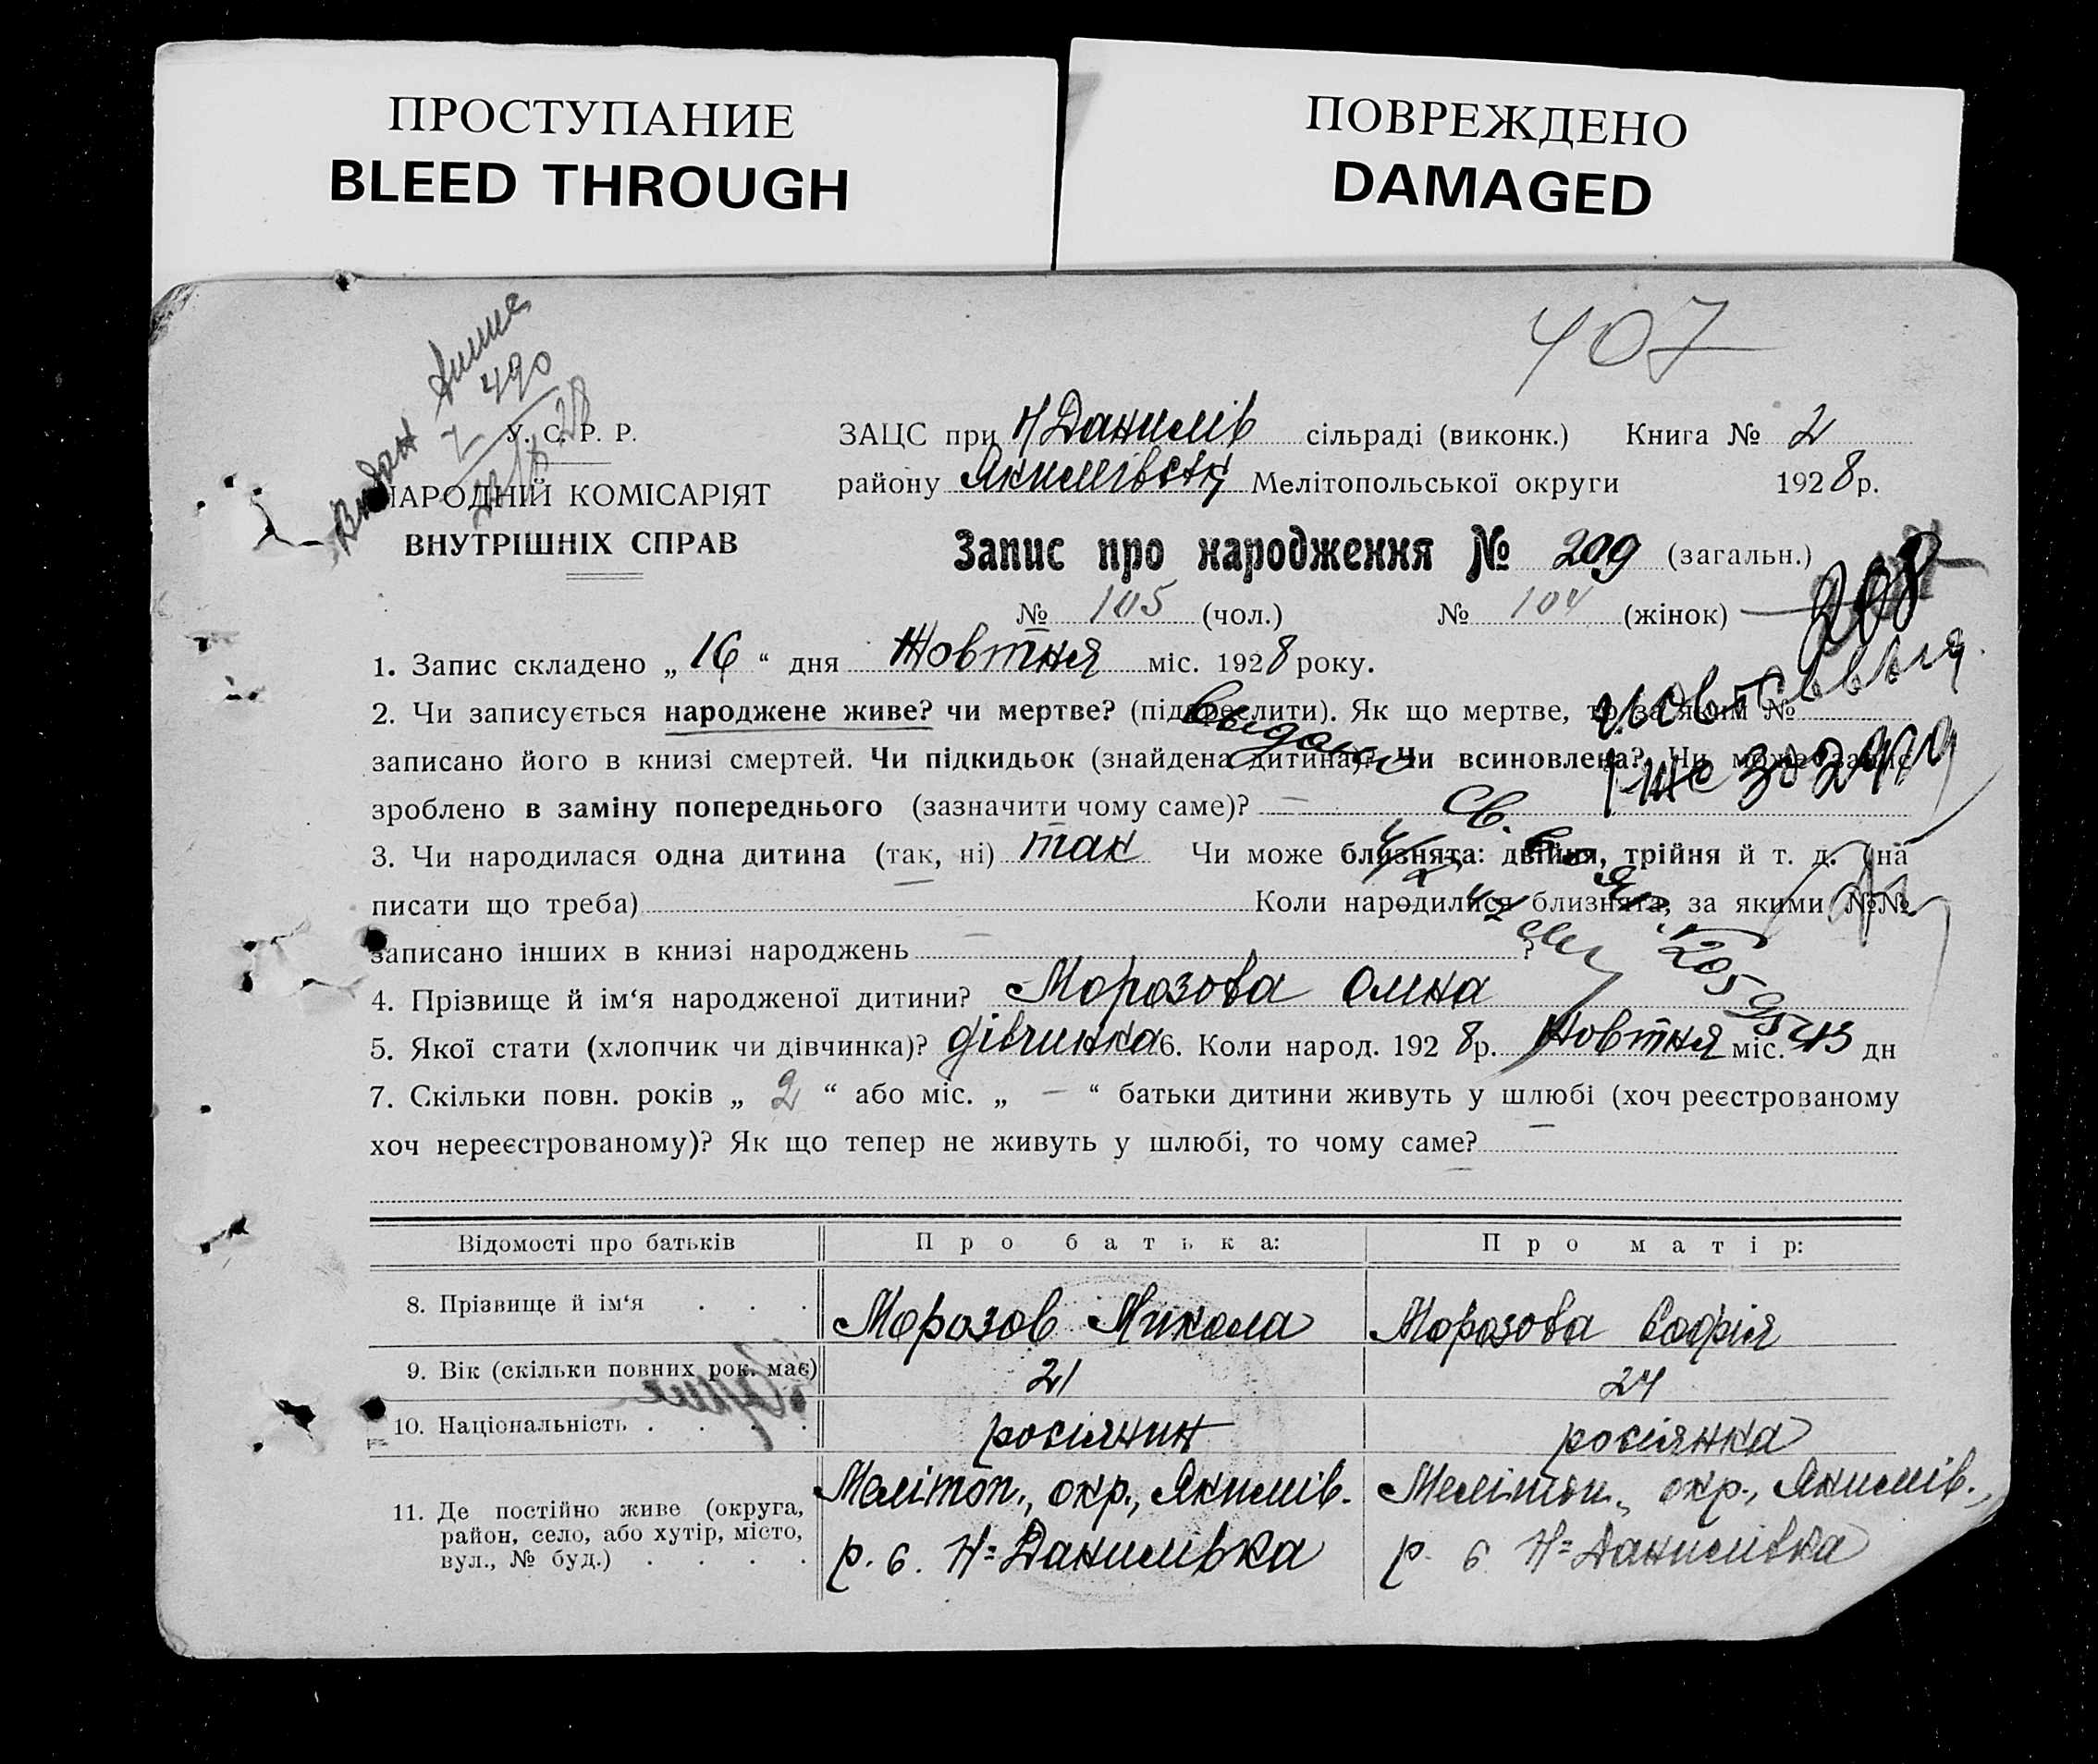 ПРОСТУПАНИЕ
BLEED THROUGH
ПОВРЕЖДЕНО
DAMAGED
407
Видан
490
У. С. Р. Р.
НАРОДНІЙ КОМІСАРІЯТ
ВНУТРІШНІХ СПРАВ
ЗАЦС при Н Данилів сільраді (виконк.) Книга № 2
району Якимівськ Мелітопольської округи 1928 р.
Запис про народження № 209 (загальн.)
208
№ 105 (чол.) № 104 (жінок)
1. Запис складено „ 16 “ дня Жовтня міс. 1928 року.
2. Чи записується народжене живе? чи мертве? (підкреслити). Як що мертве, то за яким №
записано його в книзі смертей. Чи підкидьок (знайдена дитина)? Чи всиновлена? Чи може запис
зроблено в заміну попереднього (зазначити чому саме)? —
3. Чи народилася одна дитина (так, ні) так Чи може близнята: двійня, трійня й т. д. (на
писати що треба) Коли народилися близнята, за якими №№
записано інших в книзі народжень ?
4. Прізвище й ім‘я народженої дитини? Морозова Олна
5. Якої стати (хлопчик чи дівчинка)? дівчинка 6. Коли народ. 1928 р. Жовтня міс. 13 дн
7. Скільки повн. років „ 2 “ або міс. „ — “ батьки дитини живуть у шлюбі (хоч реєстрованому
хоч нереєстрованому)? Як що тепер не живуть у шлюбі, то чому саме?
Відомості про батьків Про батька: Про матір:
8. Прізвище й ім‘я . . . Морозов Микола Морозова Софія
9. Вік (скільки повних рок. має) 21 24
10. Національність . . . . росіянин росіянка
11. Де постійно живе (округа, район, село, або хутір, місто, вул., № буд.) . . . .
Мелітоп., окр., Якимів.
р. с. Н=Данилівка
Мелітоп., окр., Якимів.,
р. с Н=Данилівка